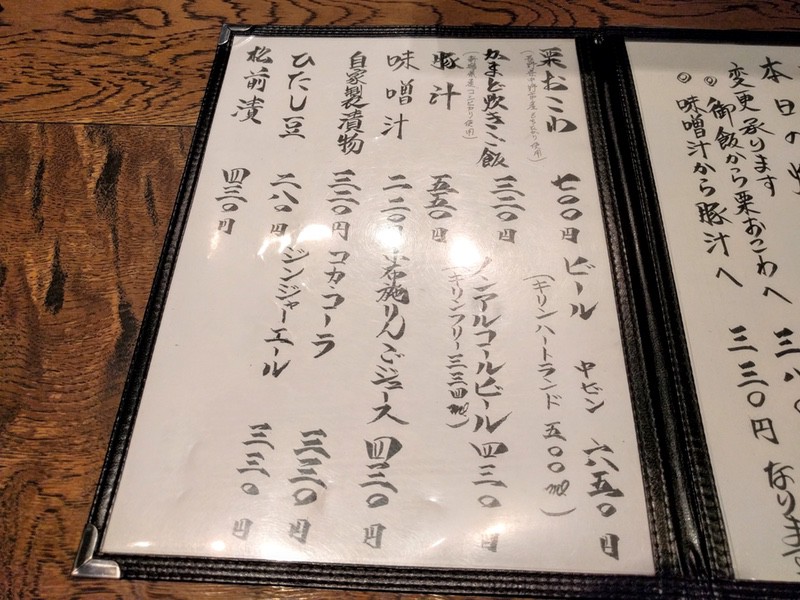 本日の
変更承ります
◎御飯から栗おこわへ 三八〇
◎味噌汁から豚汁へ 三三〇円 なります
栗おこわ 七〇〇円
かまど炊きご飯 三二〇円
(新潟県産コシヒカリ使用)
豚汁 五五〇円
味噌汁 二二〇円
自家製漬物 三二〇円
ひたし豆 二八〇円
松前漬 四三〇円
ビール 中ビン 六五〇円
(キリンハートランド 五〇〇ml)
ノンアルコールビール 四三〇円
(キリンフリー三三四ml)
布施りんごジュース 四三〇円
コカ・コーラ 三三〇円
ジンジャーエール 三三〇円